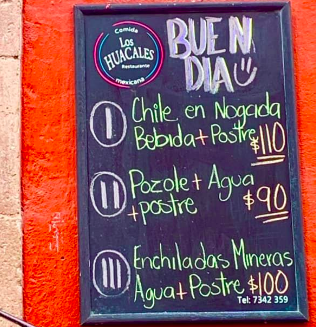 Comida
Los
HUACALES
Restaurante
mexicana
BUEN
DIA
I Chile en Nogada
Bebida + Postre $110
II Pozole + Agua
+ postre $90
III Enchiladas Mineras
Agua + Postre $100
Tel: 7342 359